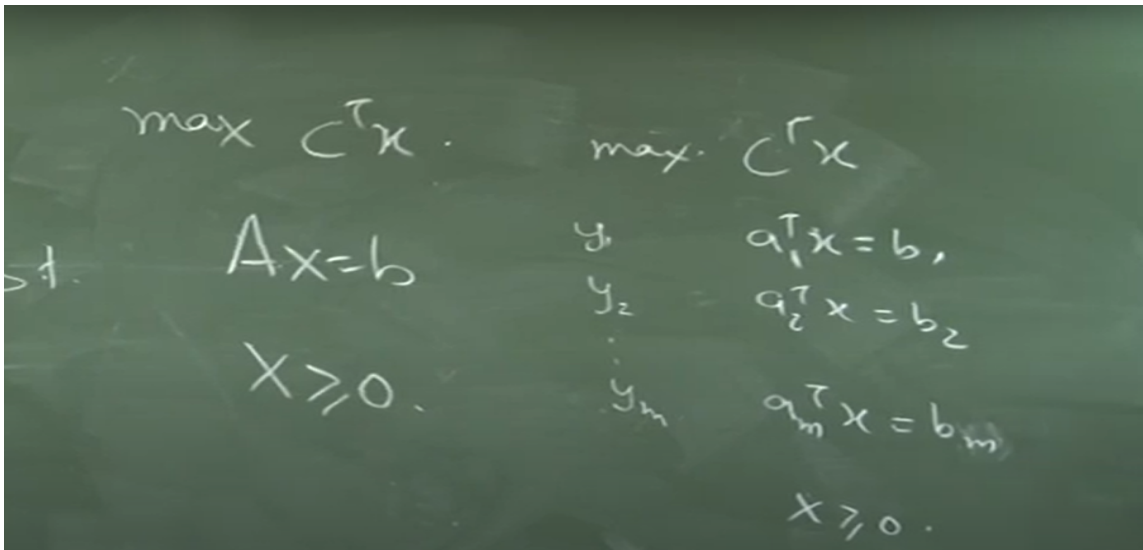 max Cᵀx.
s.t. Ax=b
X≥0.
max. Cᵀx
y₁ a₁ᵀx = b₁
y₂ a₂ᵀx = b₂
⋮
yₘ aₘᵀx = bₘ
X≥0.